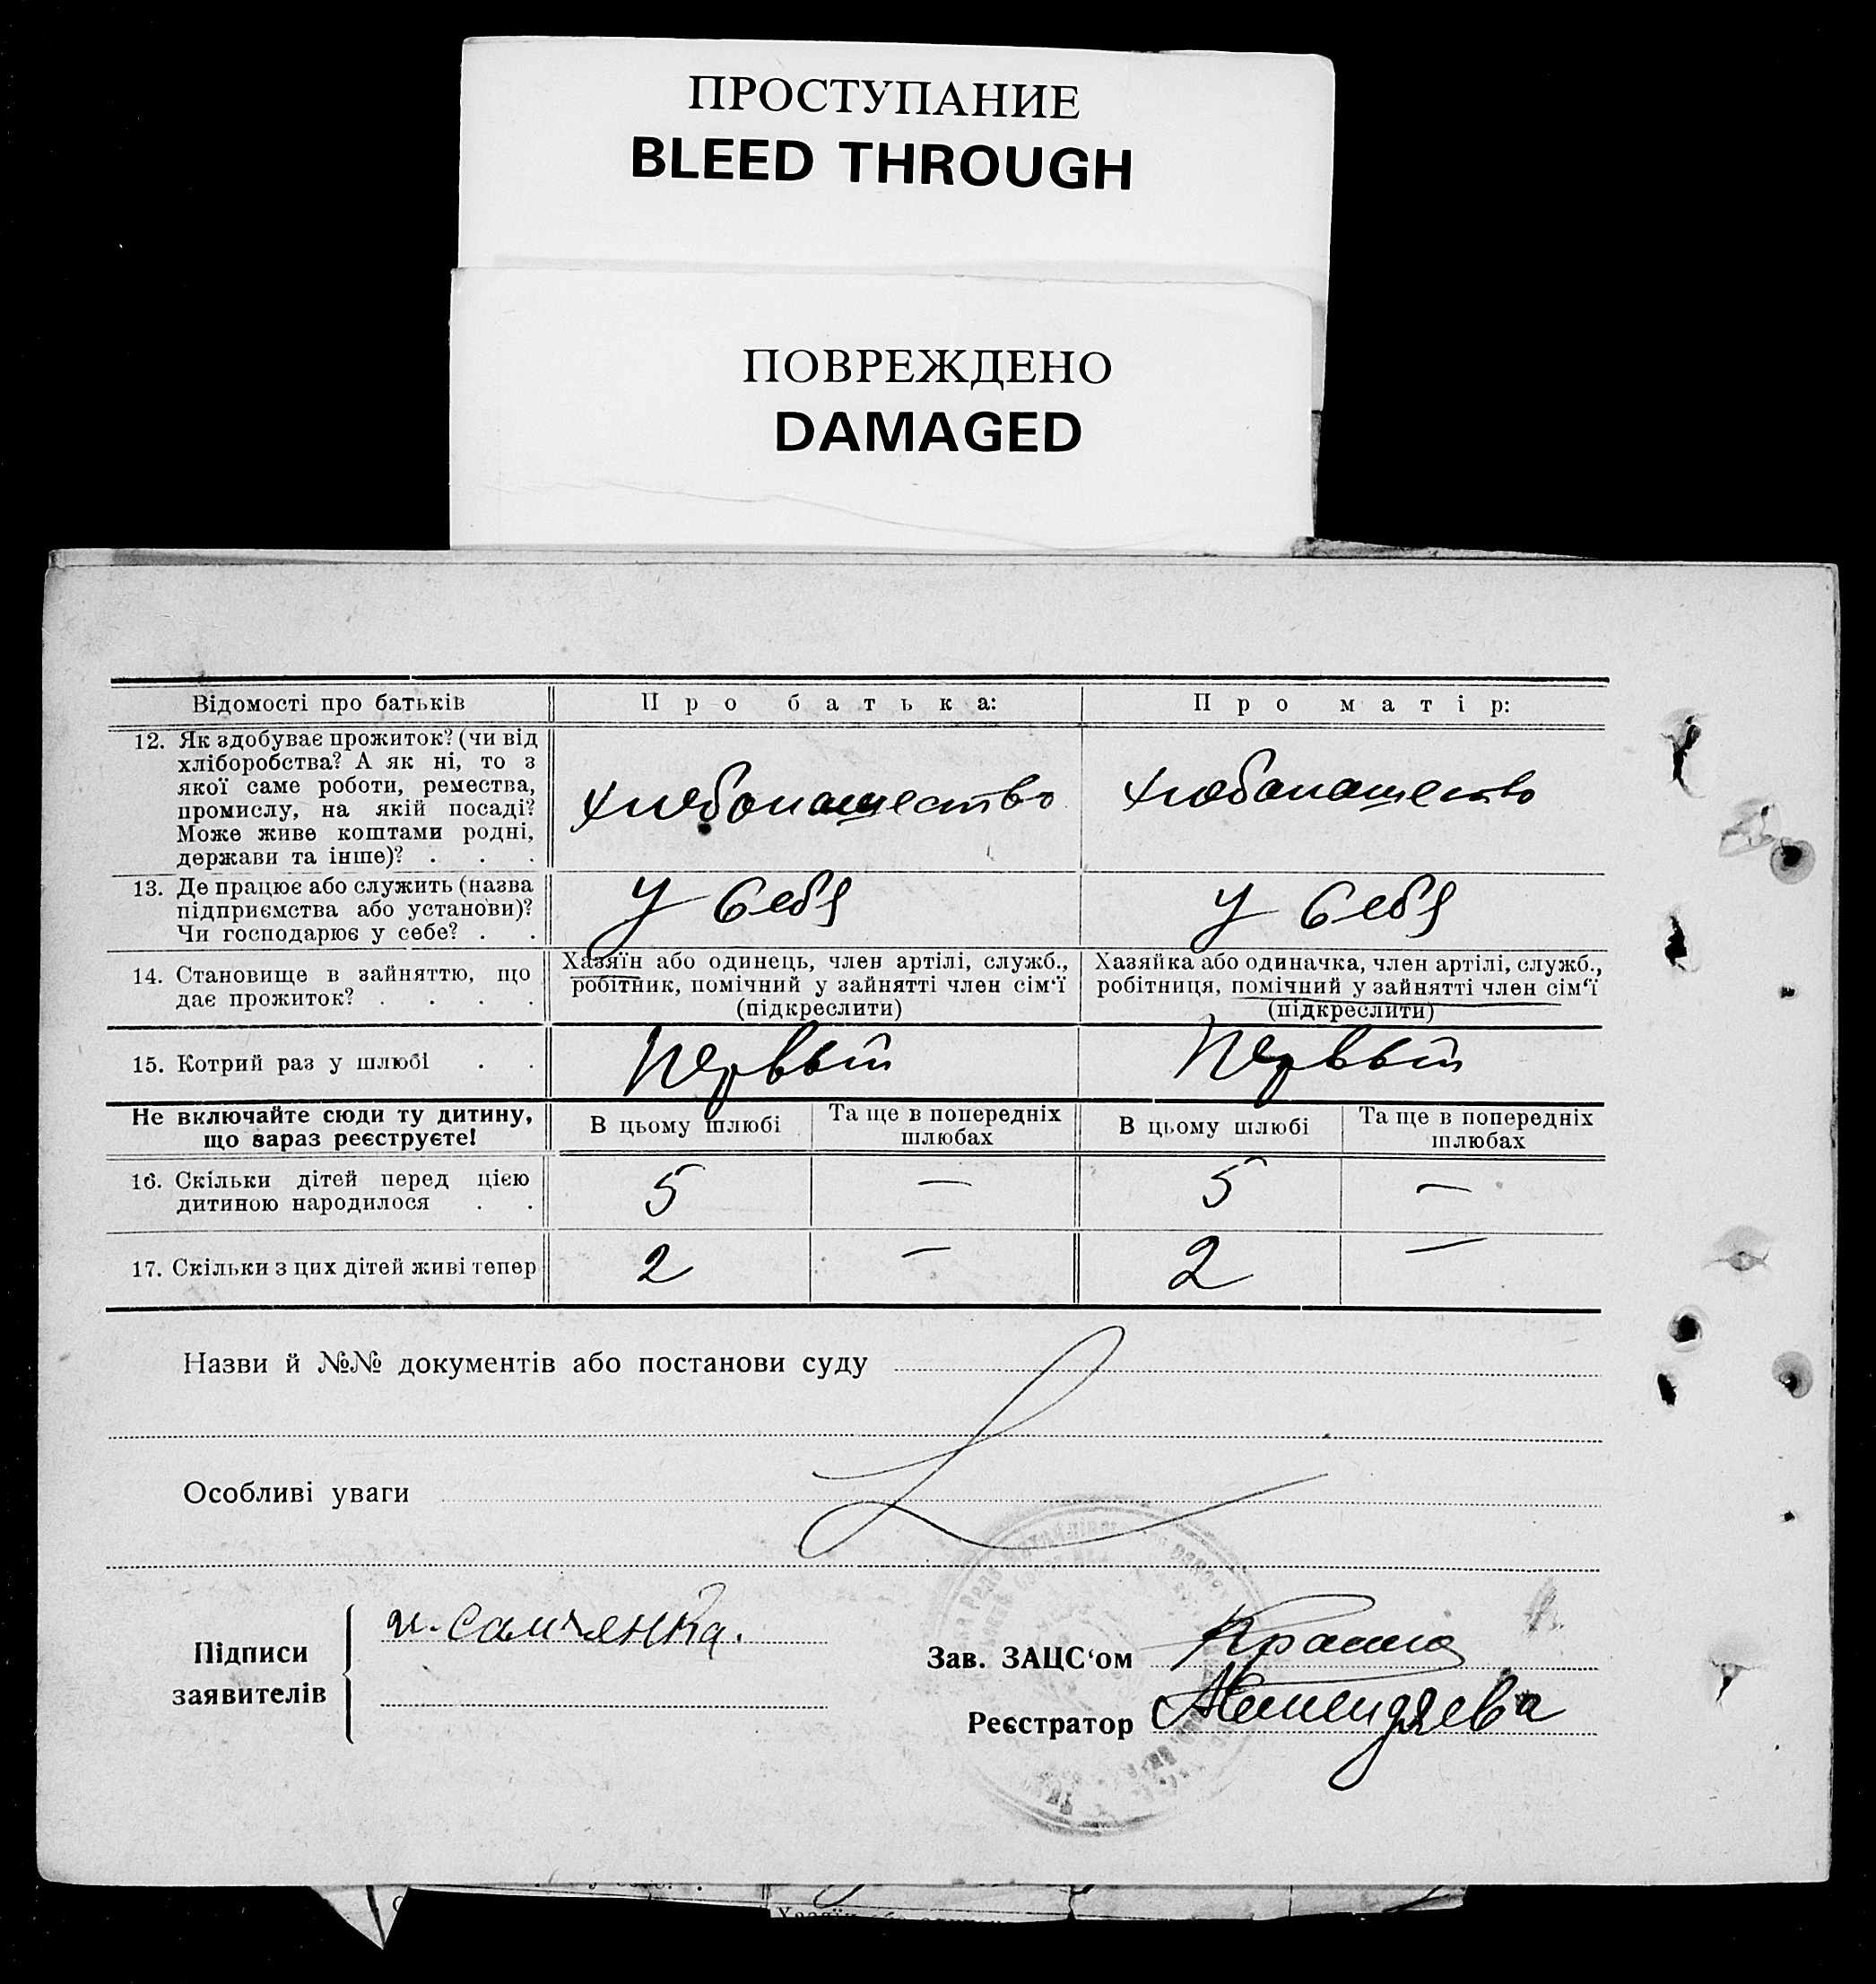 ПРОСТУПАНИЕ
BLEED THROUGH
ПОВРЕЖДЕНО
DAMAGED
Відомості про батьків
Про батька:
Про матір:
12. Як здобуває прожиток? (чи від
хліборобства? А як ні, то з
якої саме роботи, ремества,
промислу, на якій посаді?
Може живе коштами родні,
держави та інше)? . . .
хлебопашество
хлебопашество
13. Де працює або служить (назва
підприємства або установи)?
Чи господарює у себе? . .
У себя
У себя
14. Становище в зайняттю, що
дає прожиток? . . . .
Хазяїн або одинець, член артілі, служб.,
робітник, помічний у зайнятті член сім'ї
(підкреслити)
Хазяйка або одиначка, член артілі, служб.,
робітниця, помічний у зайнятті член сім'ї
(підкреслити)
15. Котрий раз у шлюбі . .
Первый
Первый
Не включайте сюди ту дитину,
що зараз реєструєте!
В цьому шлюбі
Та ще в попередніх
шлюбах
В цьому шлюбі
Та ще в попередніх
шлюбах
16. Скільки дітей перед цією
дитиною народилося . .
5 — 5 —
17. Скільки з цих дітей живі тепер
2 — 2 —
Назви й №№ документів або постанови суду
Особливі уваги
Підписи
заявителів
Зав. ЗАЦС'ом
Реєстратор